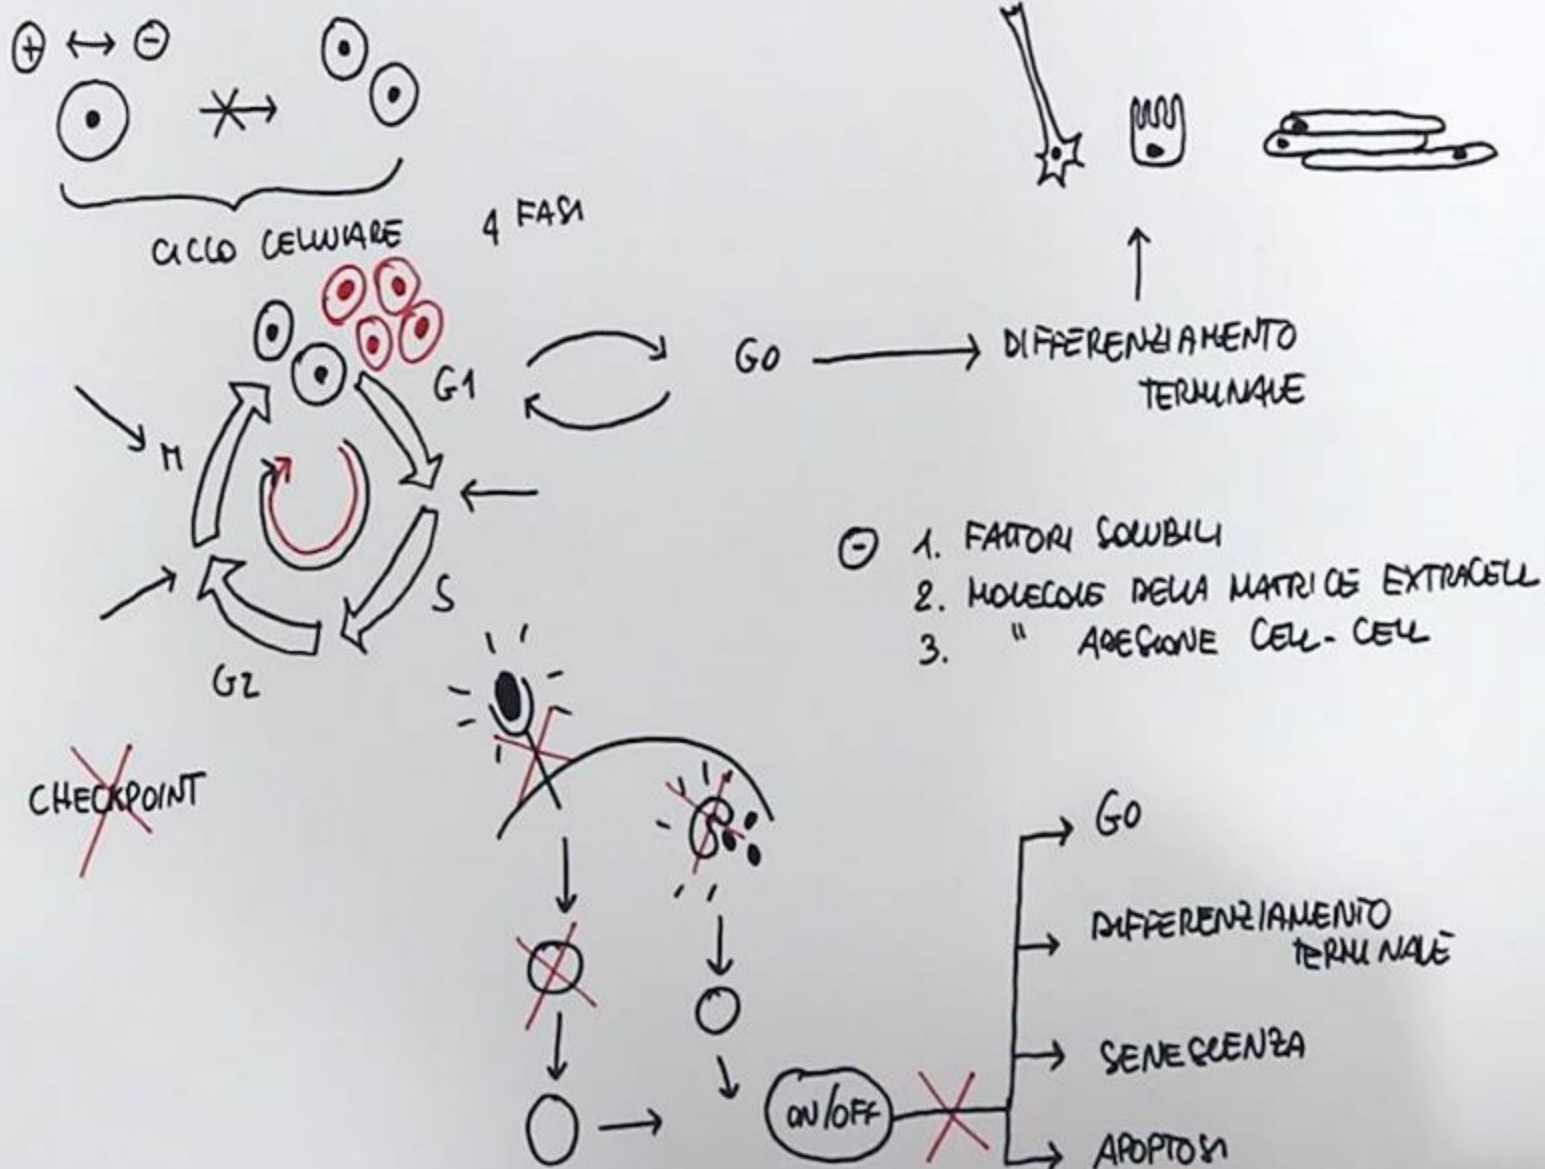 + ↔ -
CICLO CELLULARE 4 FASI
G1
G0 → DIFFERENZIAMENTO
TERMINALE
M
S
G2
- 1. FATTORI SOLUBILI
2. MOLECOLE DELLA MATRICE EXTRACELL
3. " ADESIONE CELL-CELL
CHECKPOINT
G0
DIFFERENZIAMENTO
TERMINALE
SENESCENZA
ON/OFF
APOPTOSI